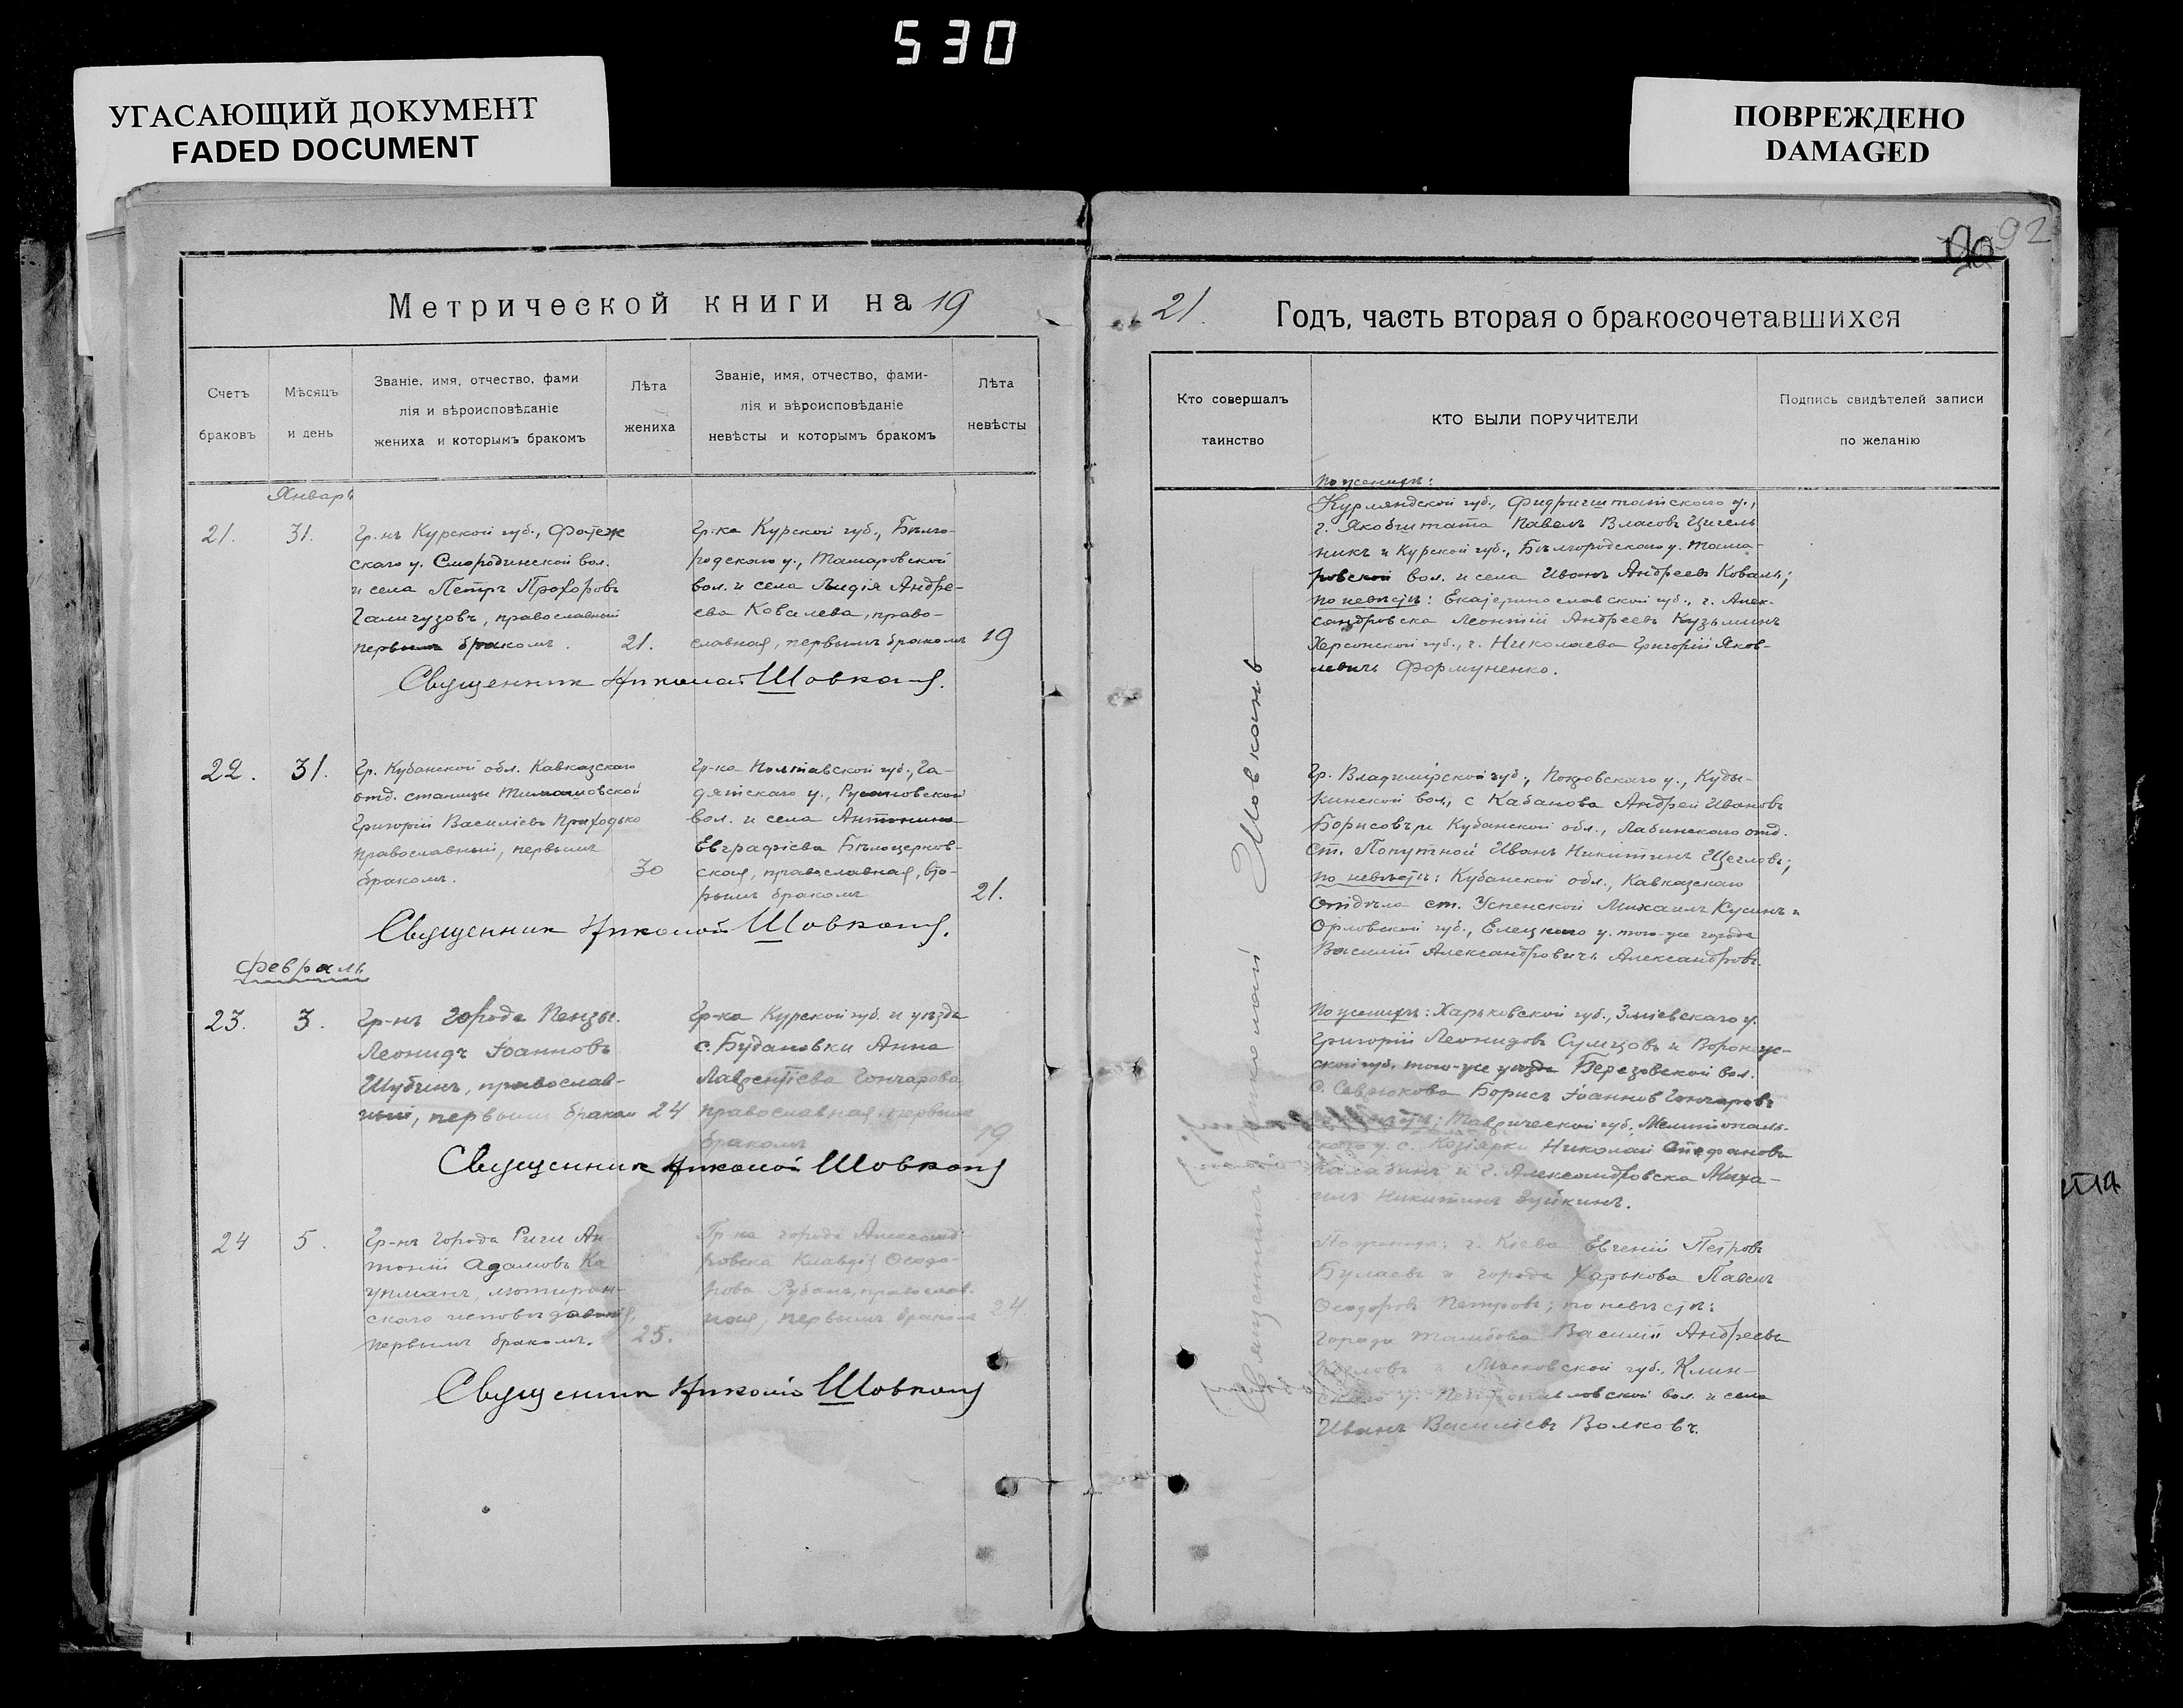 530
УГАСАЮЩИЙ ДОКУМЕНТ
FADED DOCUMENT
ПОВРЕЖДЕНО
DAMAGED
92
Метрической книги на 19
Счетъ
браковъ
Мѣсяцъ
и день
Званіе, имя, отчество, фами
лія и вѣроисповѣданіе
жениха и которымъ бракомъ
Лѣта
жениха
Званіе, имя, отчество, фами-
лія и вѣроисповѣданіе
невѣсты и которымъ бракомъ
Лѣта
невѣсты
Январь
21.
31.
Гр-нъ Курской губ., Фатеж
скаго у. Смородинской вол.
и села Петръ Прохоровъ
Галигузовъ, православный
первымъ бракомъ.
21.
Гр-ка Курской губ., Бѣлго-
родскаго у., Томаровской
вол. и села Лидія Андре-
ева Ковалева, право-
славная, первымъ бракомъ
19
Священник Николай Шовкань.
22.
31.
Гр. Кубанской обл. Кавказскаго
отд. станицы Тимашовской
Григорій Василіевъ Приходько
православный, первымъ
бракомъ.
30
Гр-ка Полтавской губ., Га-
дятскаго у., Русановской
вол. и села Антонина
Евграфіева Бѣлоцерков-
ская, православная, вто-
рымъ бракомъ
21.
Священник Николай Шовкань.
Февраль
23.
3.
Гр-нъ города Пензы.
Леонидъ Іоанновъ
Шубинъ, православ-
ный, первымъ браком
24
Гр-ка Курской губ. и уѣзда
с. Будановки Анна
Лаврентіева Гончарова,
православная, первымъ
бракомъ
19
Священник Николай Шовкань
24
5.
Гр-нъ города Риги Ан-
тоній Адамовъ Ка
упманъ, лютеран-
ского исповѣданія,
первымъ бракомъ.
25.
Гр-ка города Александ-
ровска Клавдія Ѳеодо-
рова Рубанъ, православ-
ная, первымъ бракомъ
24
Священник Николай Шовкань
21.
Годъ, часть вторая о бракосочетавшихся
Кто совершалъ
таинство
КТО БЫЛИ ПОРУЧИТЕЛИ
Подпись свидѣтелей записи
по желанію
Священникъ Николай Шовкань
По женихѣ:
Курляндской губ., Фридрихштатскаго у.,
г. Якобштата Павелъ Власовъ
и Курской губ., Бѣлгородскаго у. Тома-
ровской вол. и села Иванъ Андреевъ Коваль;
по невѣстѣ: Екатеринославской губ., г. Алек-
сандровска Леонтій Андреевъ Кузьминъ
Херсонской губ., г. Николаева Григорій Яков-
левичъ Формуненко.
Гр. Владимірской губ., Покровскаго у., Куды-
кинской вол., с Кабанова Андрей Ивановъ
Борисовъ и Кубанской обл., Лабинскаго отд.
Ст. Попутной Иванъ Никитинъ Щегловъ;
по невѣстѣ: Кубанской обл., Кавказскаго
Отдѣла ст. Успенской Михаилъ Кусинъ и
Орловской губ., Елецкаго у. того-же города
Василій Александровичъ Александровъ.
По женихѣ: Харьковской губ., Зміевскаго у.
Григорій Леонидовъ и Воронеж-
ской губ. того-же уѣзда Березовской вол.
С. Борисъ Іоанновъ Гончаровъ
Таврической губ. Мелитополь-
скаго у. с. Николай Стефановъ
и г. Александровска Миха-
илъ Никитинъ Зуйкинъ.
По женихѣ: г. Кіева Евгеній Петровъ
Булаевъ и города Харькова Павелъ
Ѳеодоровъ Петровъ; по невѣстѣ:
города Тамбова Василій Андреевъ
Козловъ и Московской губ., Клин-
скаго у. Петропавловской вол. и села
Иванъ Василіевъ Волковъ.